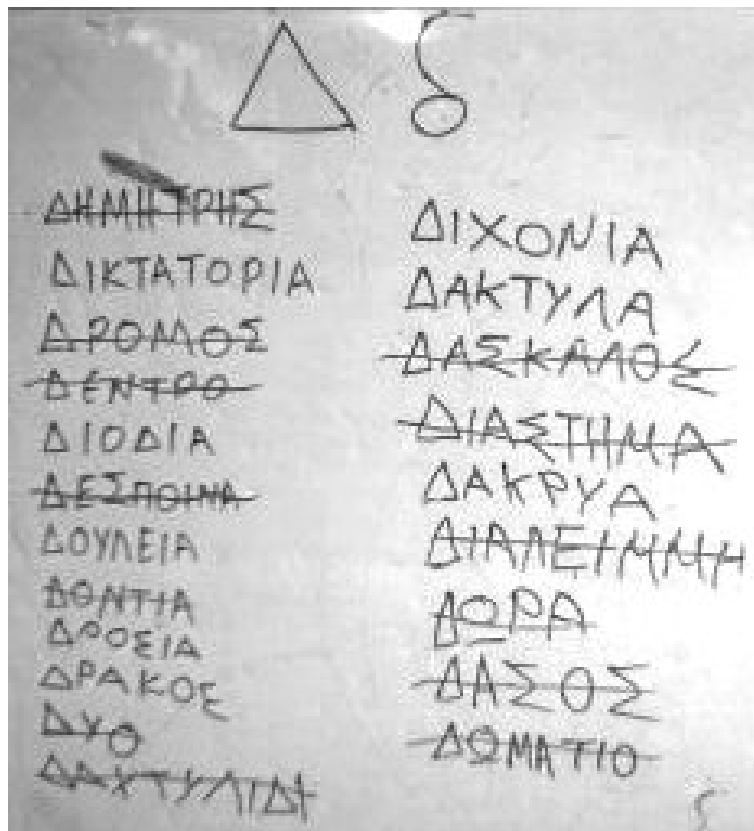 Δ δ
ΔΗΜΗΤΡΗΣ
ΔΙΚΤΑΤΟΡΙΑ
ΔΡΟΜΟΣ
ΔΕΝΤΡΟ
ΔΙΟΔΙΑ
ΔΕΣΠΟΙΝΑ
ΔΟΥΛΕΙΑ
ΔΟΝΤΙΑ
ΔΡΟΣΙΑ
ΔΡΑΚΟΣ
ΔΥΟ
ΔΑΧΤΥΛΙΔΙ
ΔΙΧΟΝΙΑ
ΔΑΚΤΥΛΑ
ΔΑΣΚΑΛΟΣ
ΔΙΑΣΤΗΜΑ
ΔΑΚΡΥΑ
ΔΩΡΑ
ΔΑΣΟΣ
ΔΩΜΑΤΙΟ